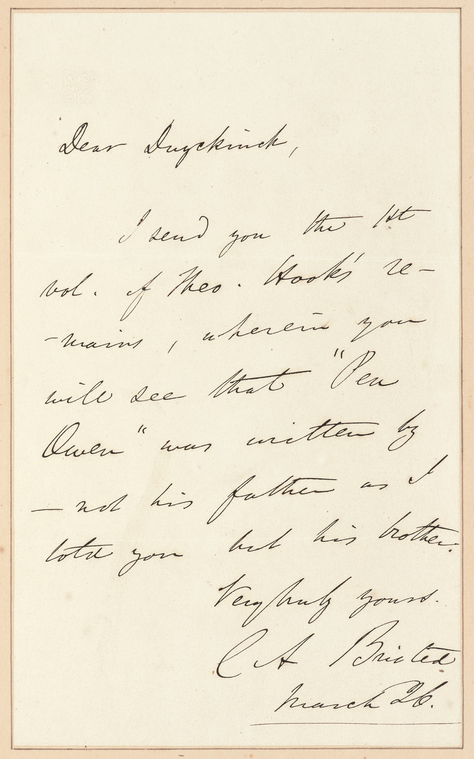 Dear Duyckinck,
I send you the 1st
vol. of Theo. Hook's re-
-mains, wherein you
will see that "Pen
Owen" was written by
— not his father as I
told you but his brother.
Very truly yours.
C A Bristed
March 26.